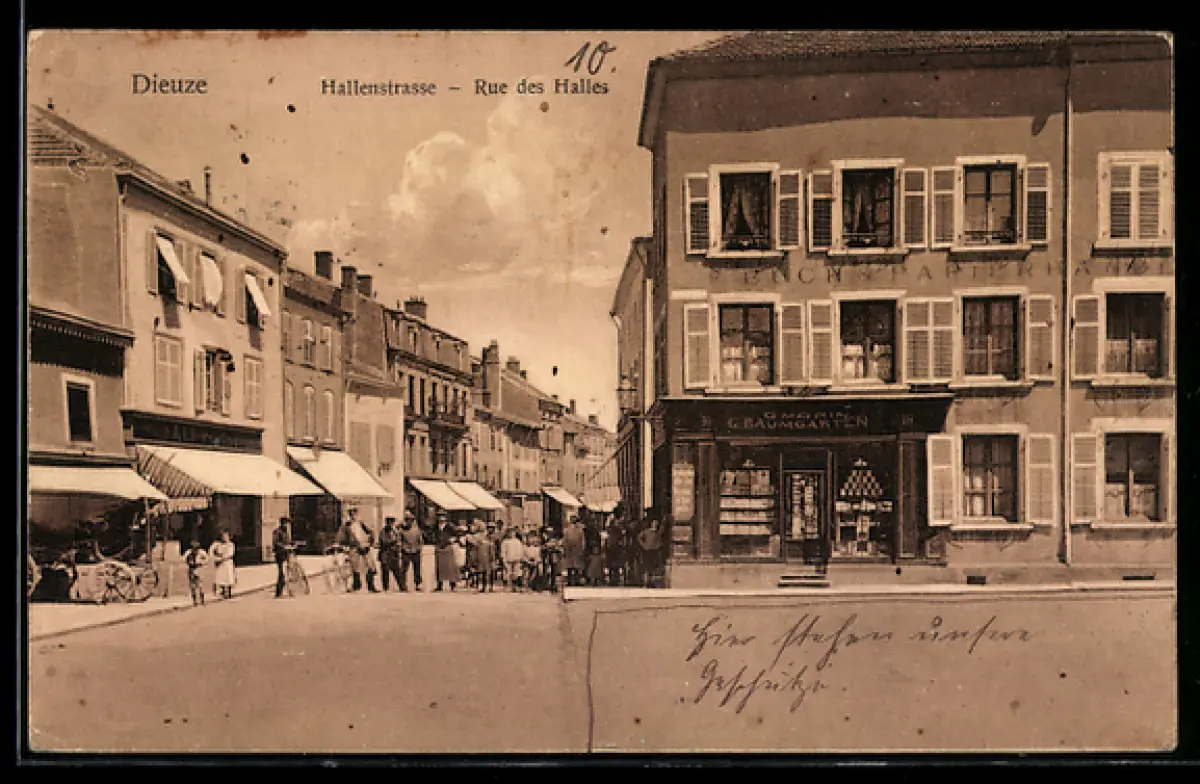 10.
Dieuze
Hallenstrasse – Rue des Halles
BUCH & PAPIERHAN
G. BAUMGARTEN
Hier stehen unsere
Geschütze.